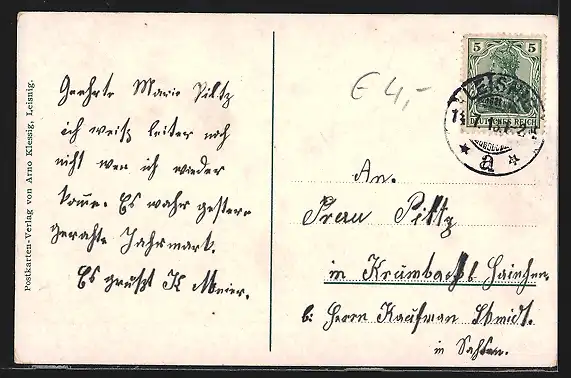 Postkarten-Verlag von Arno Klessig, Leisnig.
Geehrte Marie Piltz
ich weiß leiter noch
nicht wen ich wieder
komme. Es wahr gestern
gerahte Jahrmarkt.
Es grußt K Meier.
€ 4,-
5 5
DEUTSCHES REICH
LEISNIG
a
An.
Frau Piltz
in Krumbach b Hainchen
b: Herrn Kaufman Schmidt.
in Sachsen.